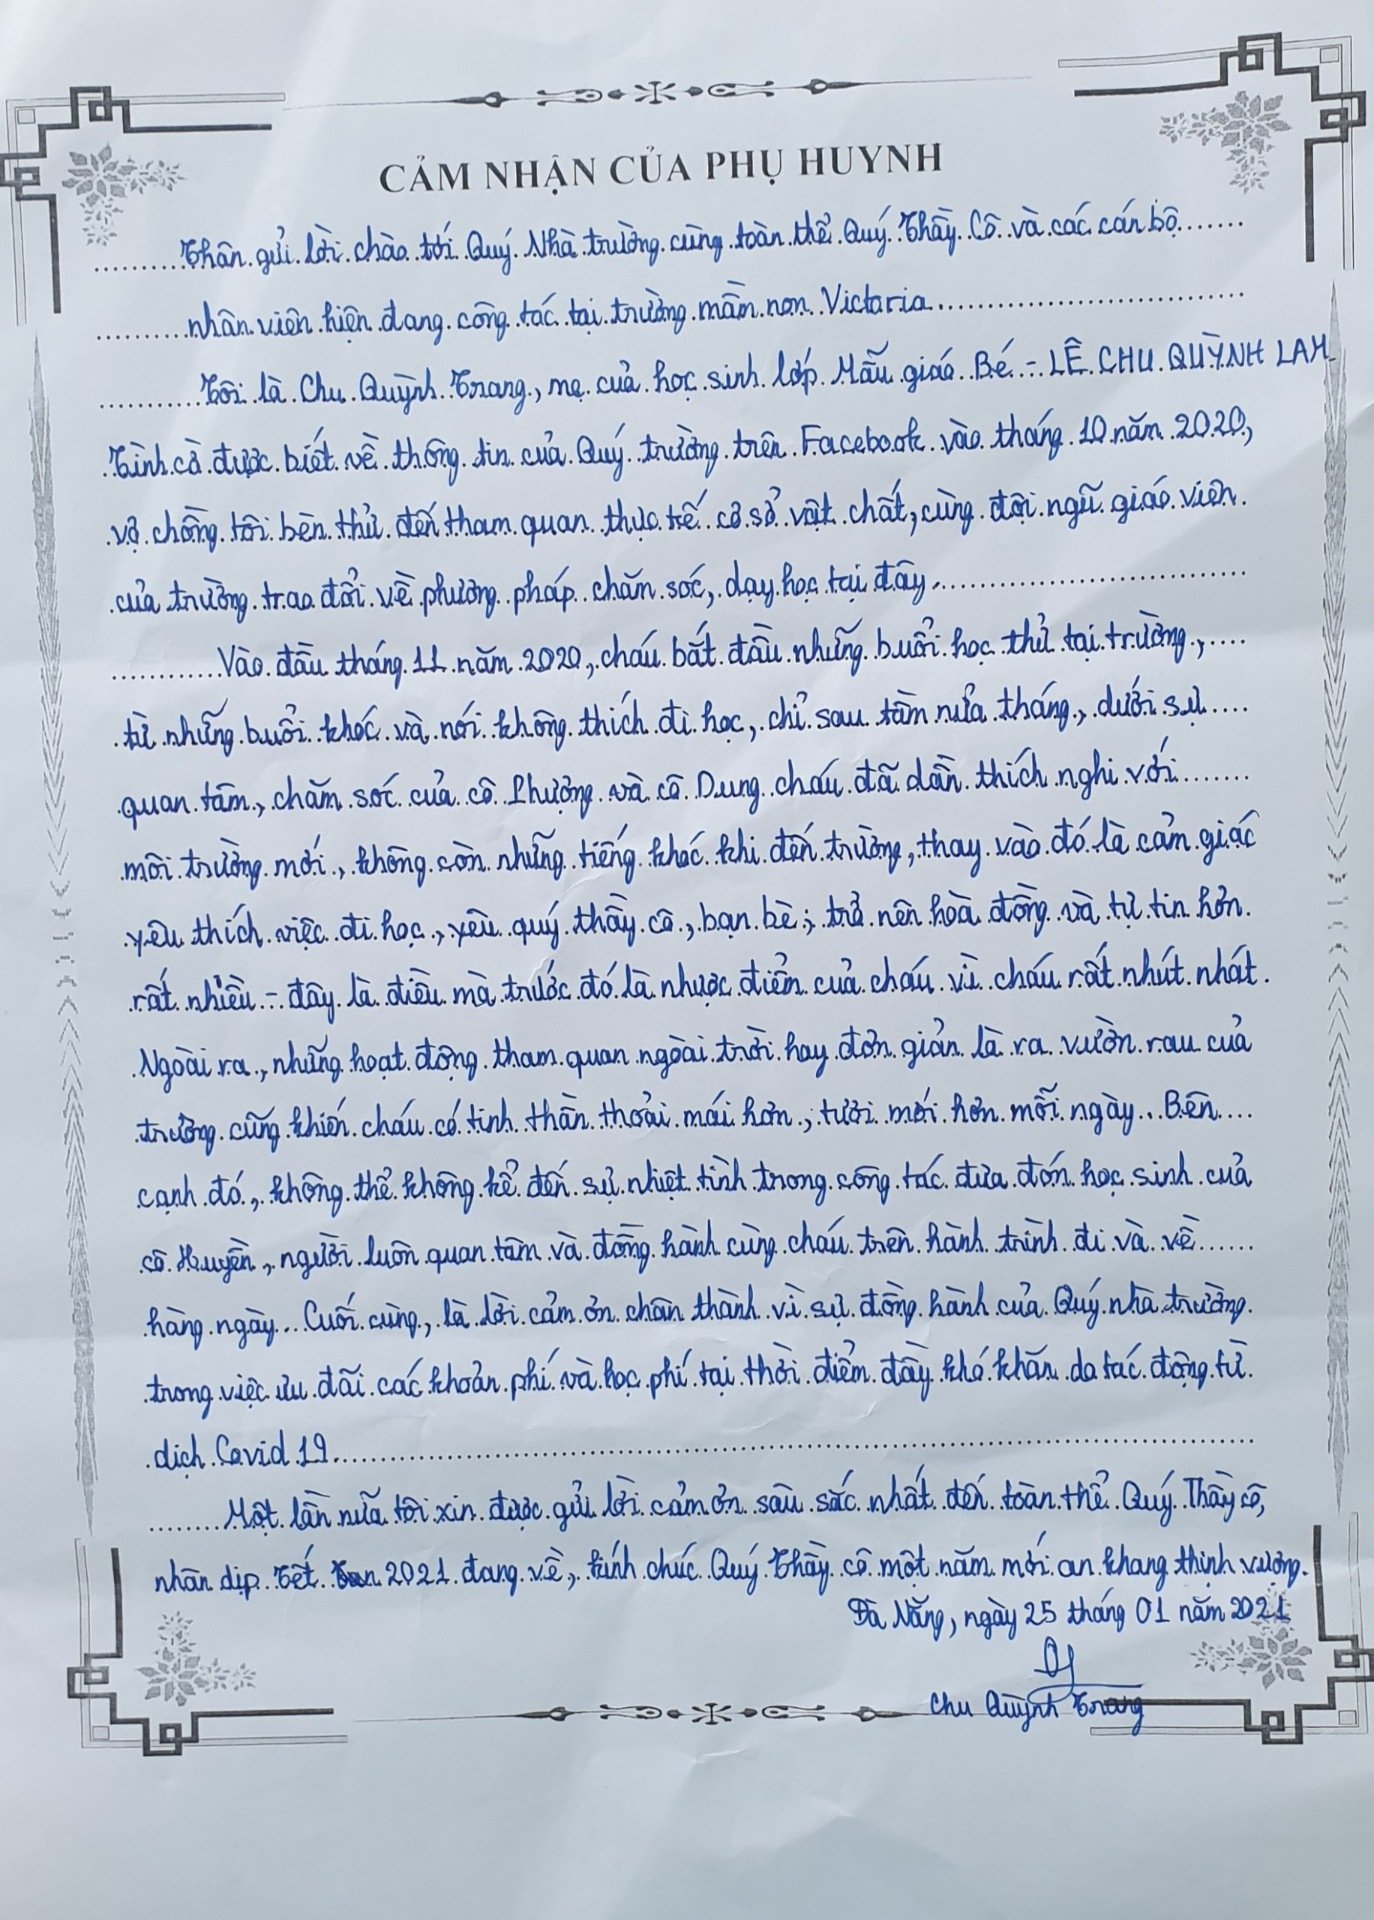 CẢM NHẬN CỦA PHỤ HUYNH
Thân gửi lời chào tới Quý Nhà trường cùng toàn thể Quý Thầy Cô và các cán bộ
nhân viên hiện đang công tác tại trường mầm non Victoria
Tôi là Chu Quỳnh Trang, mẹ của học sinh lớp Mẫu giáo Bé - LÊ CHU QUỲNH LAM
Tình cờ được biết về thông tin của Quý trường trên Facebook vào tháng 10 năm 2020,
vợ chồng tôi bèn thử đến tham quan thực tế cơ sở vật chất, cùng đội ngũ giáo viên
của trường trao đổi về phương pháp chăm sóc, dạy học tại đây.
Vào đầu tháng 11 năm 2020, cháu bắt đầu những buổi học thử tại trường,
từ những buổi khóc và nói không thích đi học, chỉ sau tầm nửa tháng, dưới sự
quan tâm, chăm sóc của cô Phượng và cô Dung cháu đã dần thích nghi với
môi trường mới, không còn những tiếng khóc khi đến trường, thay vào đó là cảm giác
yêu thích việc đi học, yêu quý thầy cô, bạn bè; trở nên hoà đồng và tự tin hơn
rất nhiều - đây là điều mà trước đó là nhược điểm của cháu vì cháu rất nhút nhát.
Ngoài ra, những hoạt động tham quan ngoài trời hay đơn giản là ra vườn rau của
trường cũng khiến cháu có tinh thần thoải mái hơn, tươi mới hơn mỗi ngày. Bên
cạnh đó, không thể không kể đến sự nhiệt tình trong công tác đưa đón học sinh của
cô Huyền, người luôn quan tâm và đồng hành cùng cháu trên hành trình đi và về
hàng ngày. Cuối cùng, là lời cảm ơn chân thành vì sự đồng hành của Quý nhà trường
trong việc ưu đãi các khoản phí và học phí tại thời điểm đầy khó khăn do tác động từ
dịch Covid 19.
Một lần nữa tôi xin được gửi lời cảm ơn sâu sắc nhất đến toàn thể Quý Thầy cô,
nhân dịp Tết 2021 đang về, kính chúc Quý Thầy cô một năm mới an khang thịnh vượng.
Đà Nẵng, ngày 25 tháng 01 năm 2021
Chu Quỳnh Trang